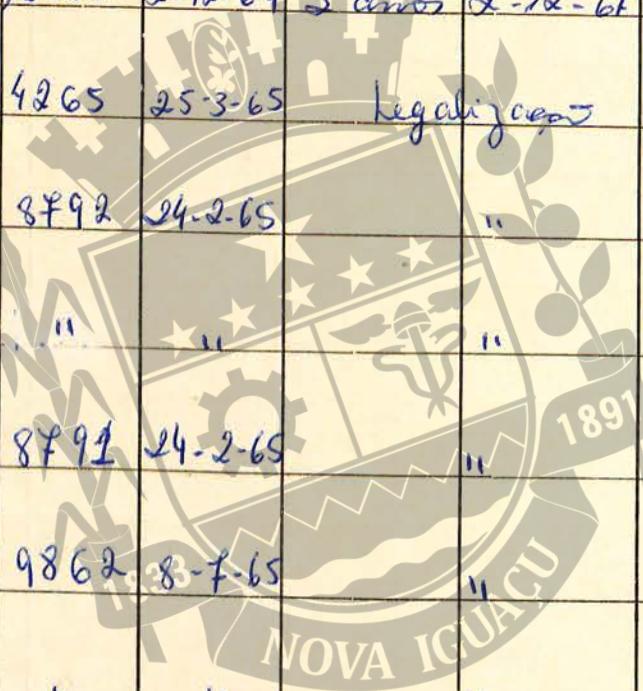 2 anos 2-12-67
4265 25-3-65 Legalização
8792 24-2-65 "
" " "
8791 24-2-65 "
9862 8-7-65 "
1891
1833
NOVA IGUAÇU